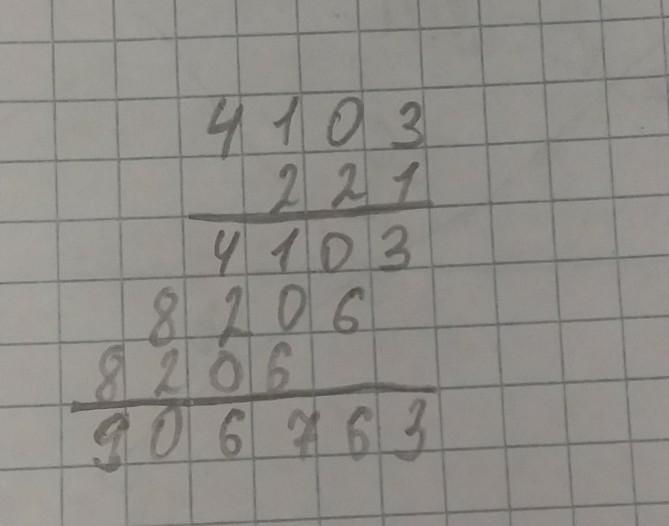 4103
221
4103
8206
8206
906763